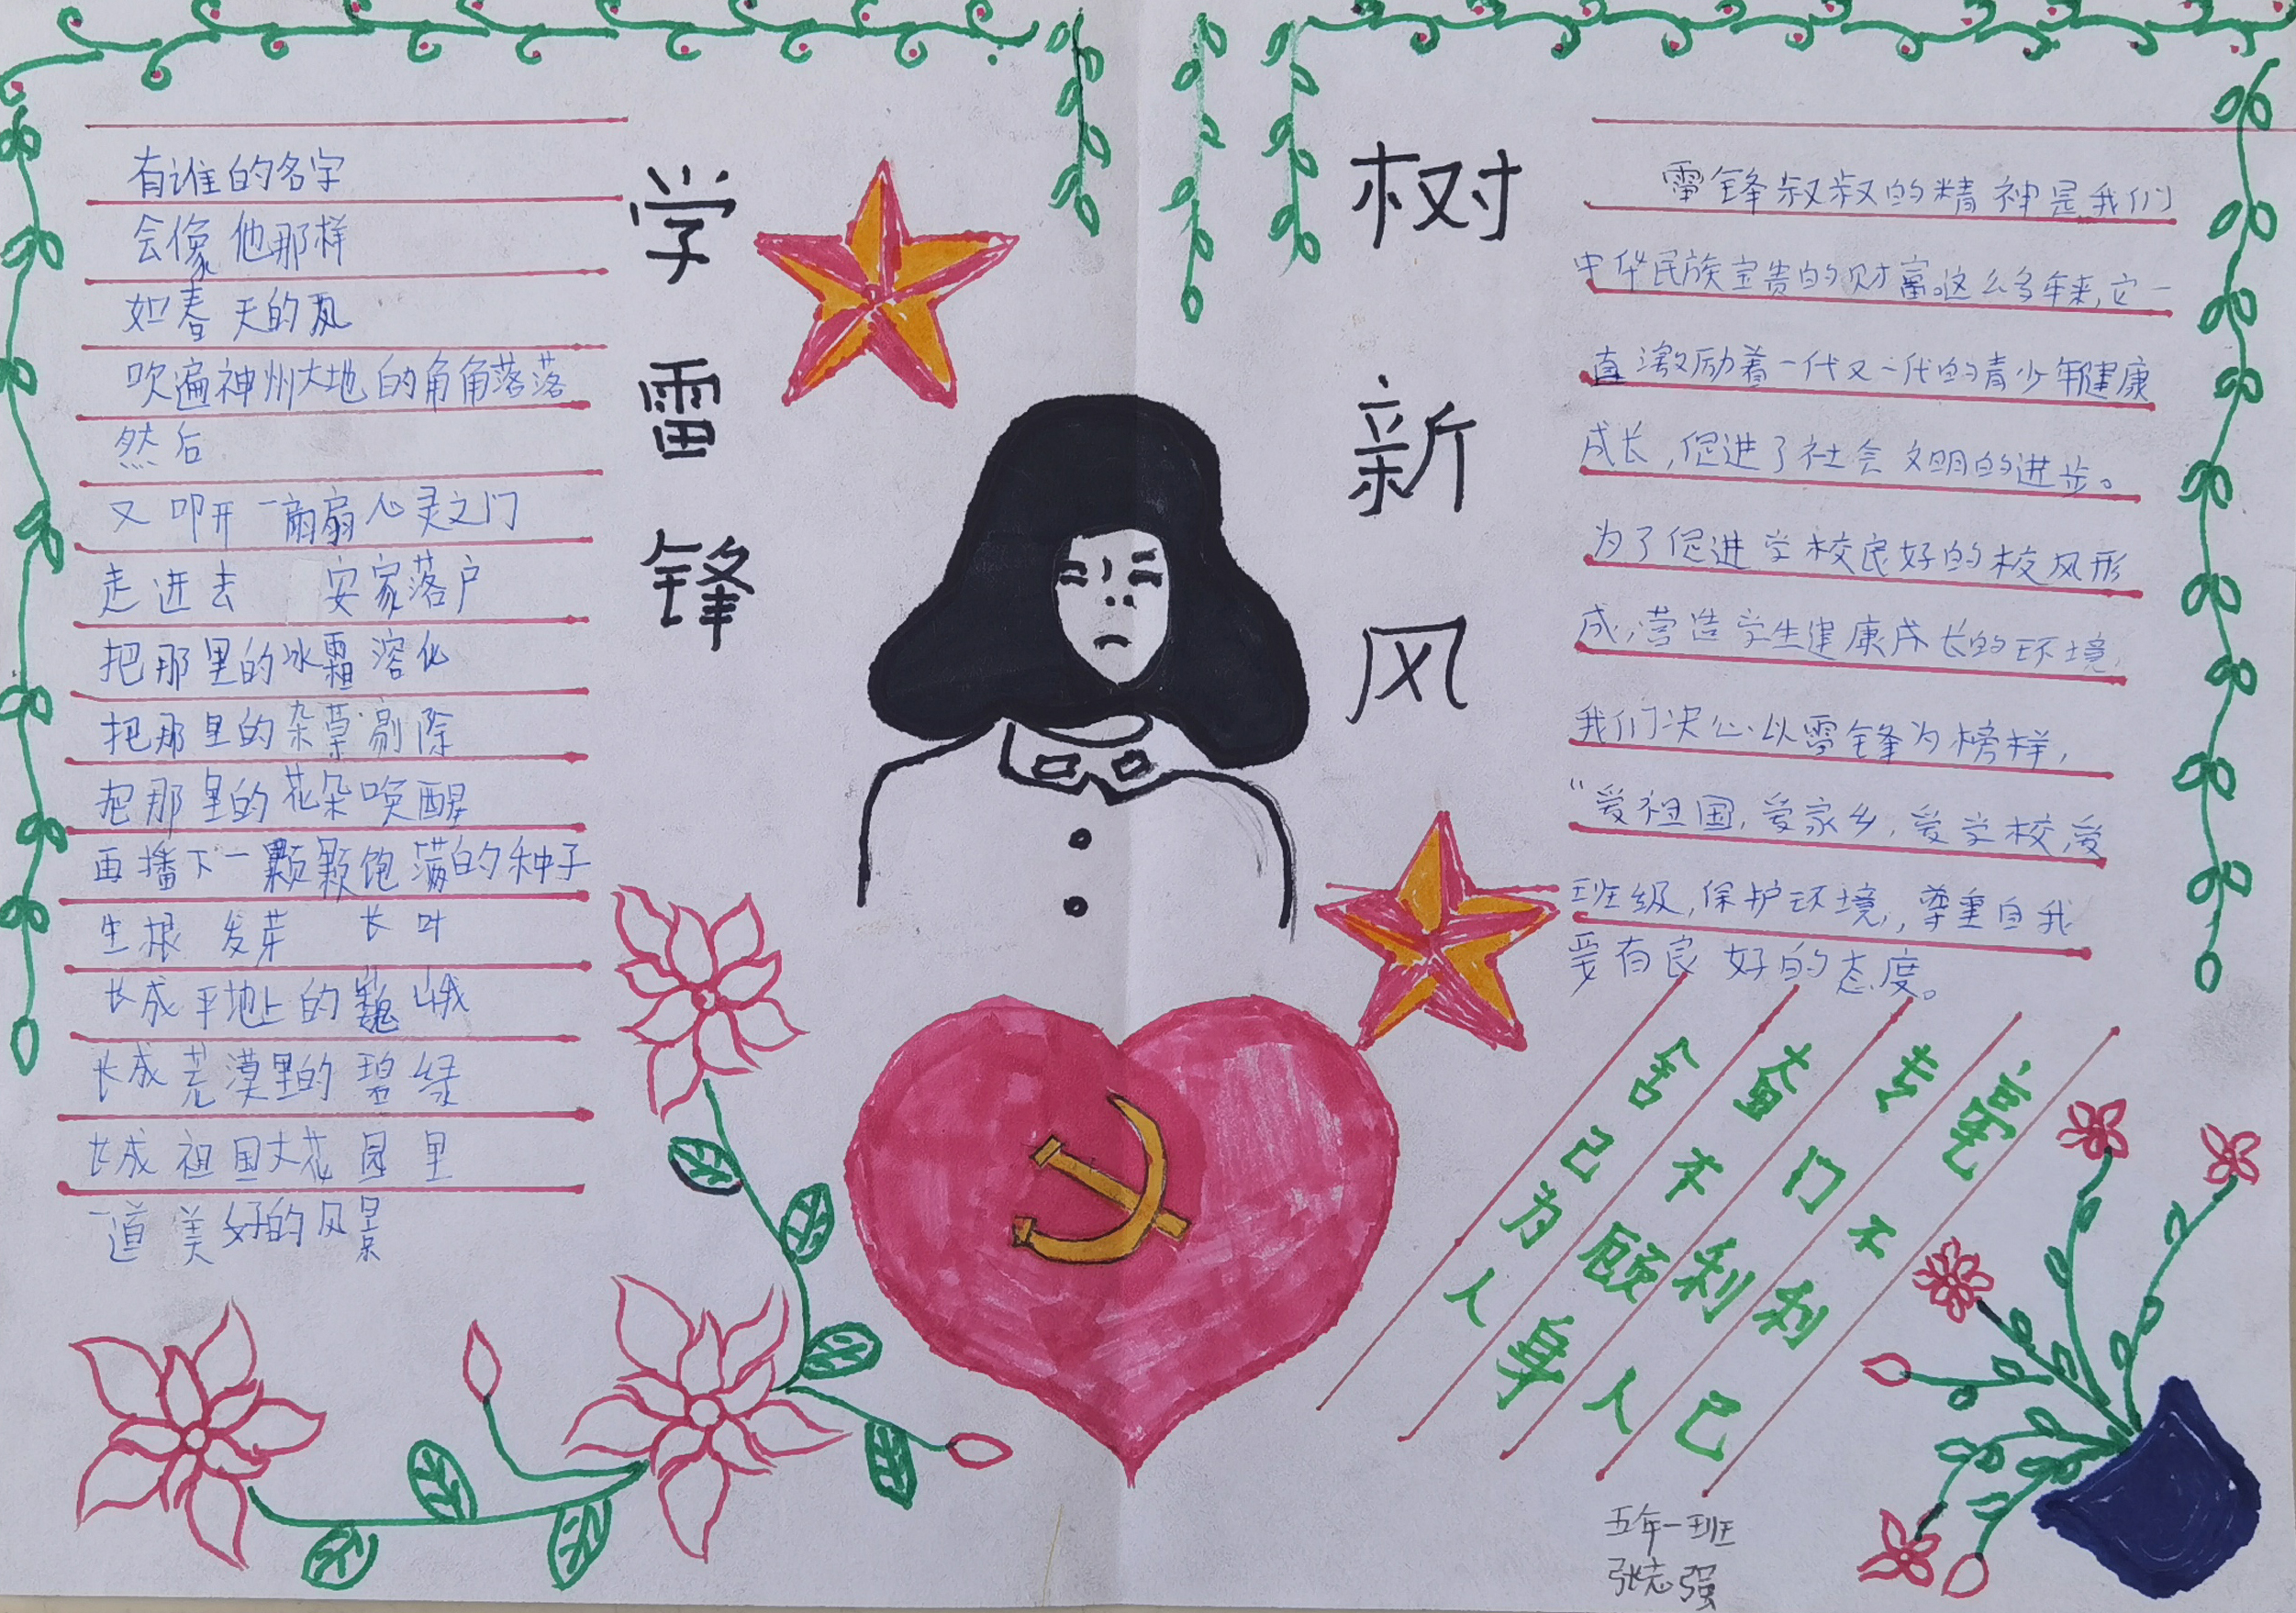 有谁的名字
会像他那样
如春天的风
吹遍神州大地的角角落落
然后
又叩开一扇扇心灵之门
走进去 安家落户
把那里的冰霜溶化
把那里的杂草剔除
把那里的花朵唤醒
再播下一颗颗饱满的种子
生根 发芽 长叶
长成平地上的巍峨
长成荒漠里的碧绿
长成祖国大花园里
一道美好的风景
学雷锋
树新风
雷锋叔叔的精神是我们
中华民族宝贵的财富。这么多年来,它一
直激励着一代又一代的青少年健康
成长,促进了社会文明的进步。
为了促进学校良好的校风形
成,营造学生健康成长的环境,
我们决心以雷锋为榜样,
“爱祖国,爱家乡,爱学校,爱
班级,保护环境,尊重自我
要有良好的态度。
舍己为人
奋不顾身
专门利人
毫不利己
五年一班
张志强